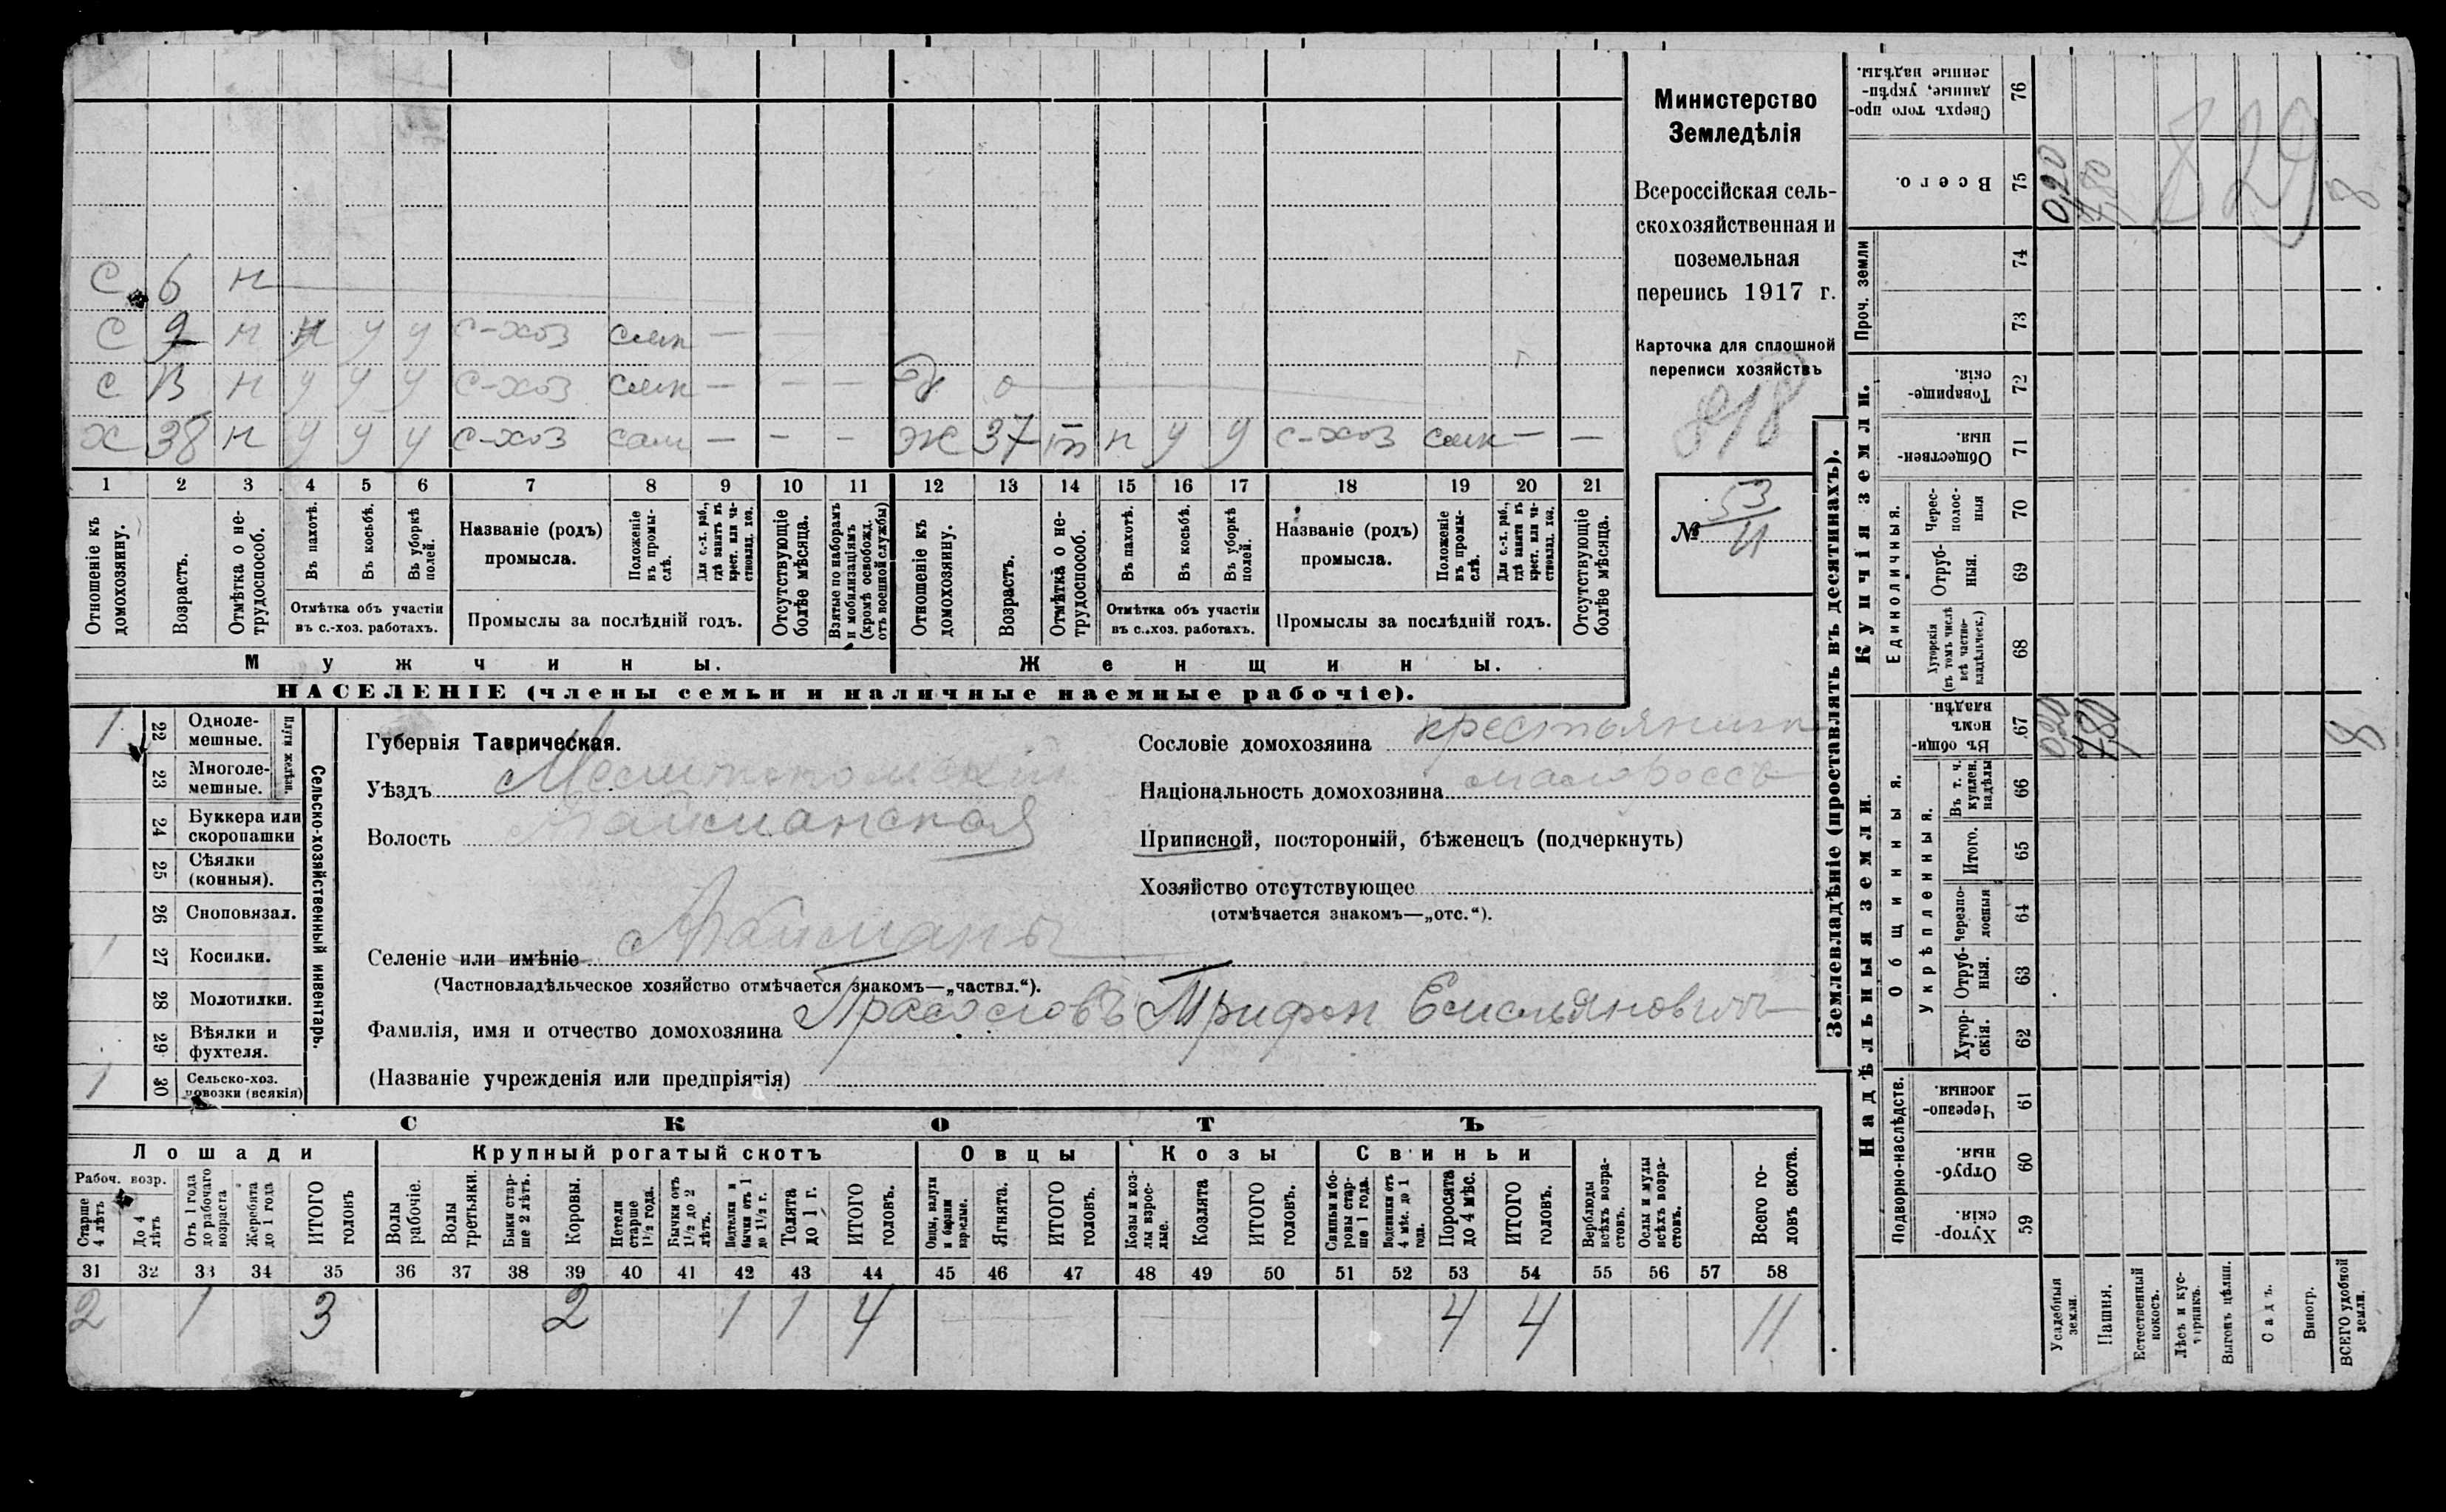 Министерство
Земледѣлія
Всероссійская сель-
скохозяйственная и
поземельная
перепись 1917 г.
Карточка для сплошной
переписи хозяйствъ
918
№ 53
11
С 6 н
С 9 н н у у с-хоз смн —
с 13 н у у у с-хоз смн — — — д о
х 38 н у у у с-хоз сам — — — ж 37 т н у у с-хоз смн — —
1 2 3 4 5 6 7 8 9 10 11 12 13 14 15 16 17 18 19 20 21
Отношеніе къ домохозяину.
Возрастъ.
Отмѣтка о не-трудоспособ.
Въ пахотѣ.
Въ косьбѣ.
Въ уборкѣ полей.
Отмѣтка объ участіи
въ с.-хоз. работахъ.
Названіе (родъ)
промысла.
Положеніе въ промы-слѣ.
Для с.-х. раб., гдѣ занятъ въ крест. или ча-стновлад. хоз.
Промыслы за послѣдній годъ.
Отсутствующіе болѣе мѣсяца.
Взятые по наборамъ и мобилизаціямъ (кромѣ освобожд. отъ военной службы)
Отношеніе къ домохозяину.
Возрастъ.
Отмѣтка о не-трудоспособ.
Въ пахотѣ.
Въ косьбѣ.
Въ уборкѣ полей.
Отмѣтка объ участіи
въ с.-хоз. работахъ.
Названіе (родъ)
промысла.
Положеніе въ промы-слѣ.
Для с.-х. раб., гдѣ занята въ крест. или ча-стновлад. хоз.
Промыслы за послѣдній годъ.
Отсутствующіе болѣе мѣсяца.
Мужчины. Женщины.
НАСЕЛЕНІЕ (члены семьи и наличные наемные рабочіе).
Сельско-хозяйственный инвентарь.
Плуги желѣзн.
1 22 Одноле-мешные.
23 Многоле-мешные.
24 Буккера или скоропашки
25 Сѣялки (конныя).
26 Сноповязал.
1 27 Косилки.
28 Молотилки.
29 Вѣялки и фухтеля.
1 30 Сельско-хоз. повозки (всякія)
Губернія Таврическая.
Уѣздъ Мелитопольскій
Волость
Селеніе или имѣніе
(Частновладѣльческое хозяйство отмѣчается знакомъ—„частвл.“).
Фамилія, имя и отчество домохозяина Трифон Емельянович
(Названіе учрежденія или предпріятія)
Сословіе домохозяина крестьянин
Національность домохозяина малороссъ
Приписной, посторонній, бѣженецъ (подчеркнуть)
Хозяйство отсутствующее
(отмѣчается знакомъ—„отс.“).
СКОТЪ
Лошади Крупный рогатый скотъ Овцы Козы Свиньи
Рабоч. возр.
Старше 4 лѣтъ
До 4 лѣтъ
Отъ 1 года до рабочаго возраста
Жеребята до 1 года
ИТОГО головъ
Волы рабочіе.
Волы третьяки.
Быки стар-ше 2 лѣтъ.
Коровы.
Нетели старше 1½ года.
Бычки отъ 1½ до 2 лѣтъ.
Подтелки и бычки отъ 1 до 1½ г.
Телята до 1 г.
ИТОГО головъ.
Овцы, валухи и бараны взрослые.
Ягнята.
ИТОГО головъ.
Козы и коз-лы взрос-лые.
Козлята
ИТОГО головъ.
Свиньи и бо-ровы стар-ше 1 года.
Подсвинки отъ 4 мѣс. до 1 года.
Поросята до 4 мѣс.
ИТОГО головъ.
Верблюды всѣхъ возра-стовъ.
Ослы и мулы всѣхъ возра-стовъ.
Всего го-ловъ скота.
31 32 33 34 35 36 37 38 39 40 41 42 43 44 45 46 47 48 49 50 51 52 53 54 55 56 57 58
2 1 3 2 1 1 4 4 4 11
Землевладѣніе (проставлять въ десятинахъ).
Надѣльныя земли.
Купчія земли.
Проч. земли
Подворно-наслѣдств.
Общинныя.
Укрѣпленныя.
Единоличныя.
Сверхъ того про-данные, укрѣп-ленные надѣлы. 76
Всего. 75 0,20 7,80 8
829
74
73
Товарище-скія. 72
Обществен-ныя. 71
Черес-полос-ныя 70
Отруб-ныя. 69
Хуторскія (въ томъ числѣ всѣ частно-владѣльческ.) 68
Въ общи-номъ владѣн. 67 0,20 7,80 8
Въ т. ч. куплен. надѣлы 66
Итого. 65
Черезпо-лосныя 64
Отруб-ныя. 63
Хутор-скія. 62
Черезпо-лосныя. 61
Отруб-ныя. 60
Хутор-скія. 59
Усадебныя земли.
Пашня.
Естественный покосъ.
Лѣсъ и кус-тарникъ.
Выгонъ цѣлин.
Садъ.
Виногр.
ВСЕГО удобной земли.